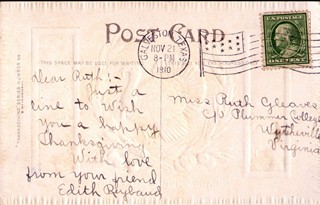 POST CARD
THIS SPACE MAY BE USED FOR WRITTEN
GALVESTON TEXAS
NOV 21
8-PM
1910
U.S. POSTAGE
ONE CENT
Dear Ruth:-
Just a
line to wish
you a happy
Thanksgiving
With love
from your friend
Edith Rybaud
Miss Ruth Gleaves
c/o Plummer College
Wytheville
Virginia